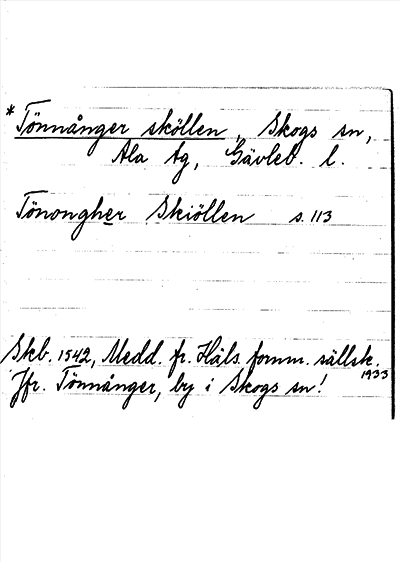 * Tönnånger sköllen, Skogs sn,
Ala tg, Gävleb. l.
Tönongher Skiöllen s. 113
Skb. 1542, Medd. fr. Häls. fornm. sällsk. 1933
Jfr. Tönnånger, by i Skogs sn!